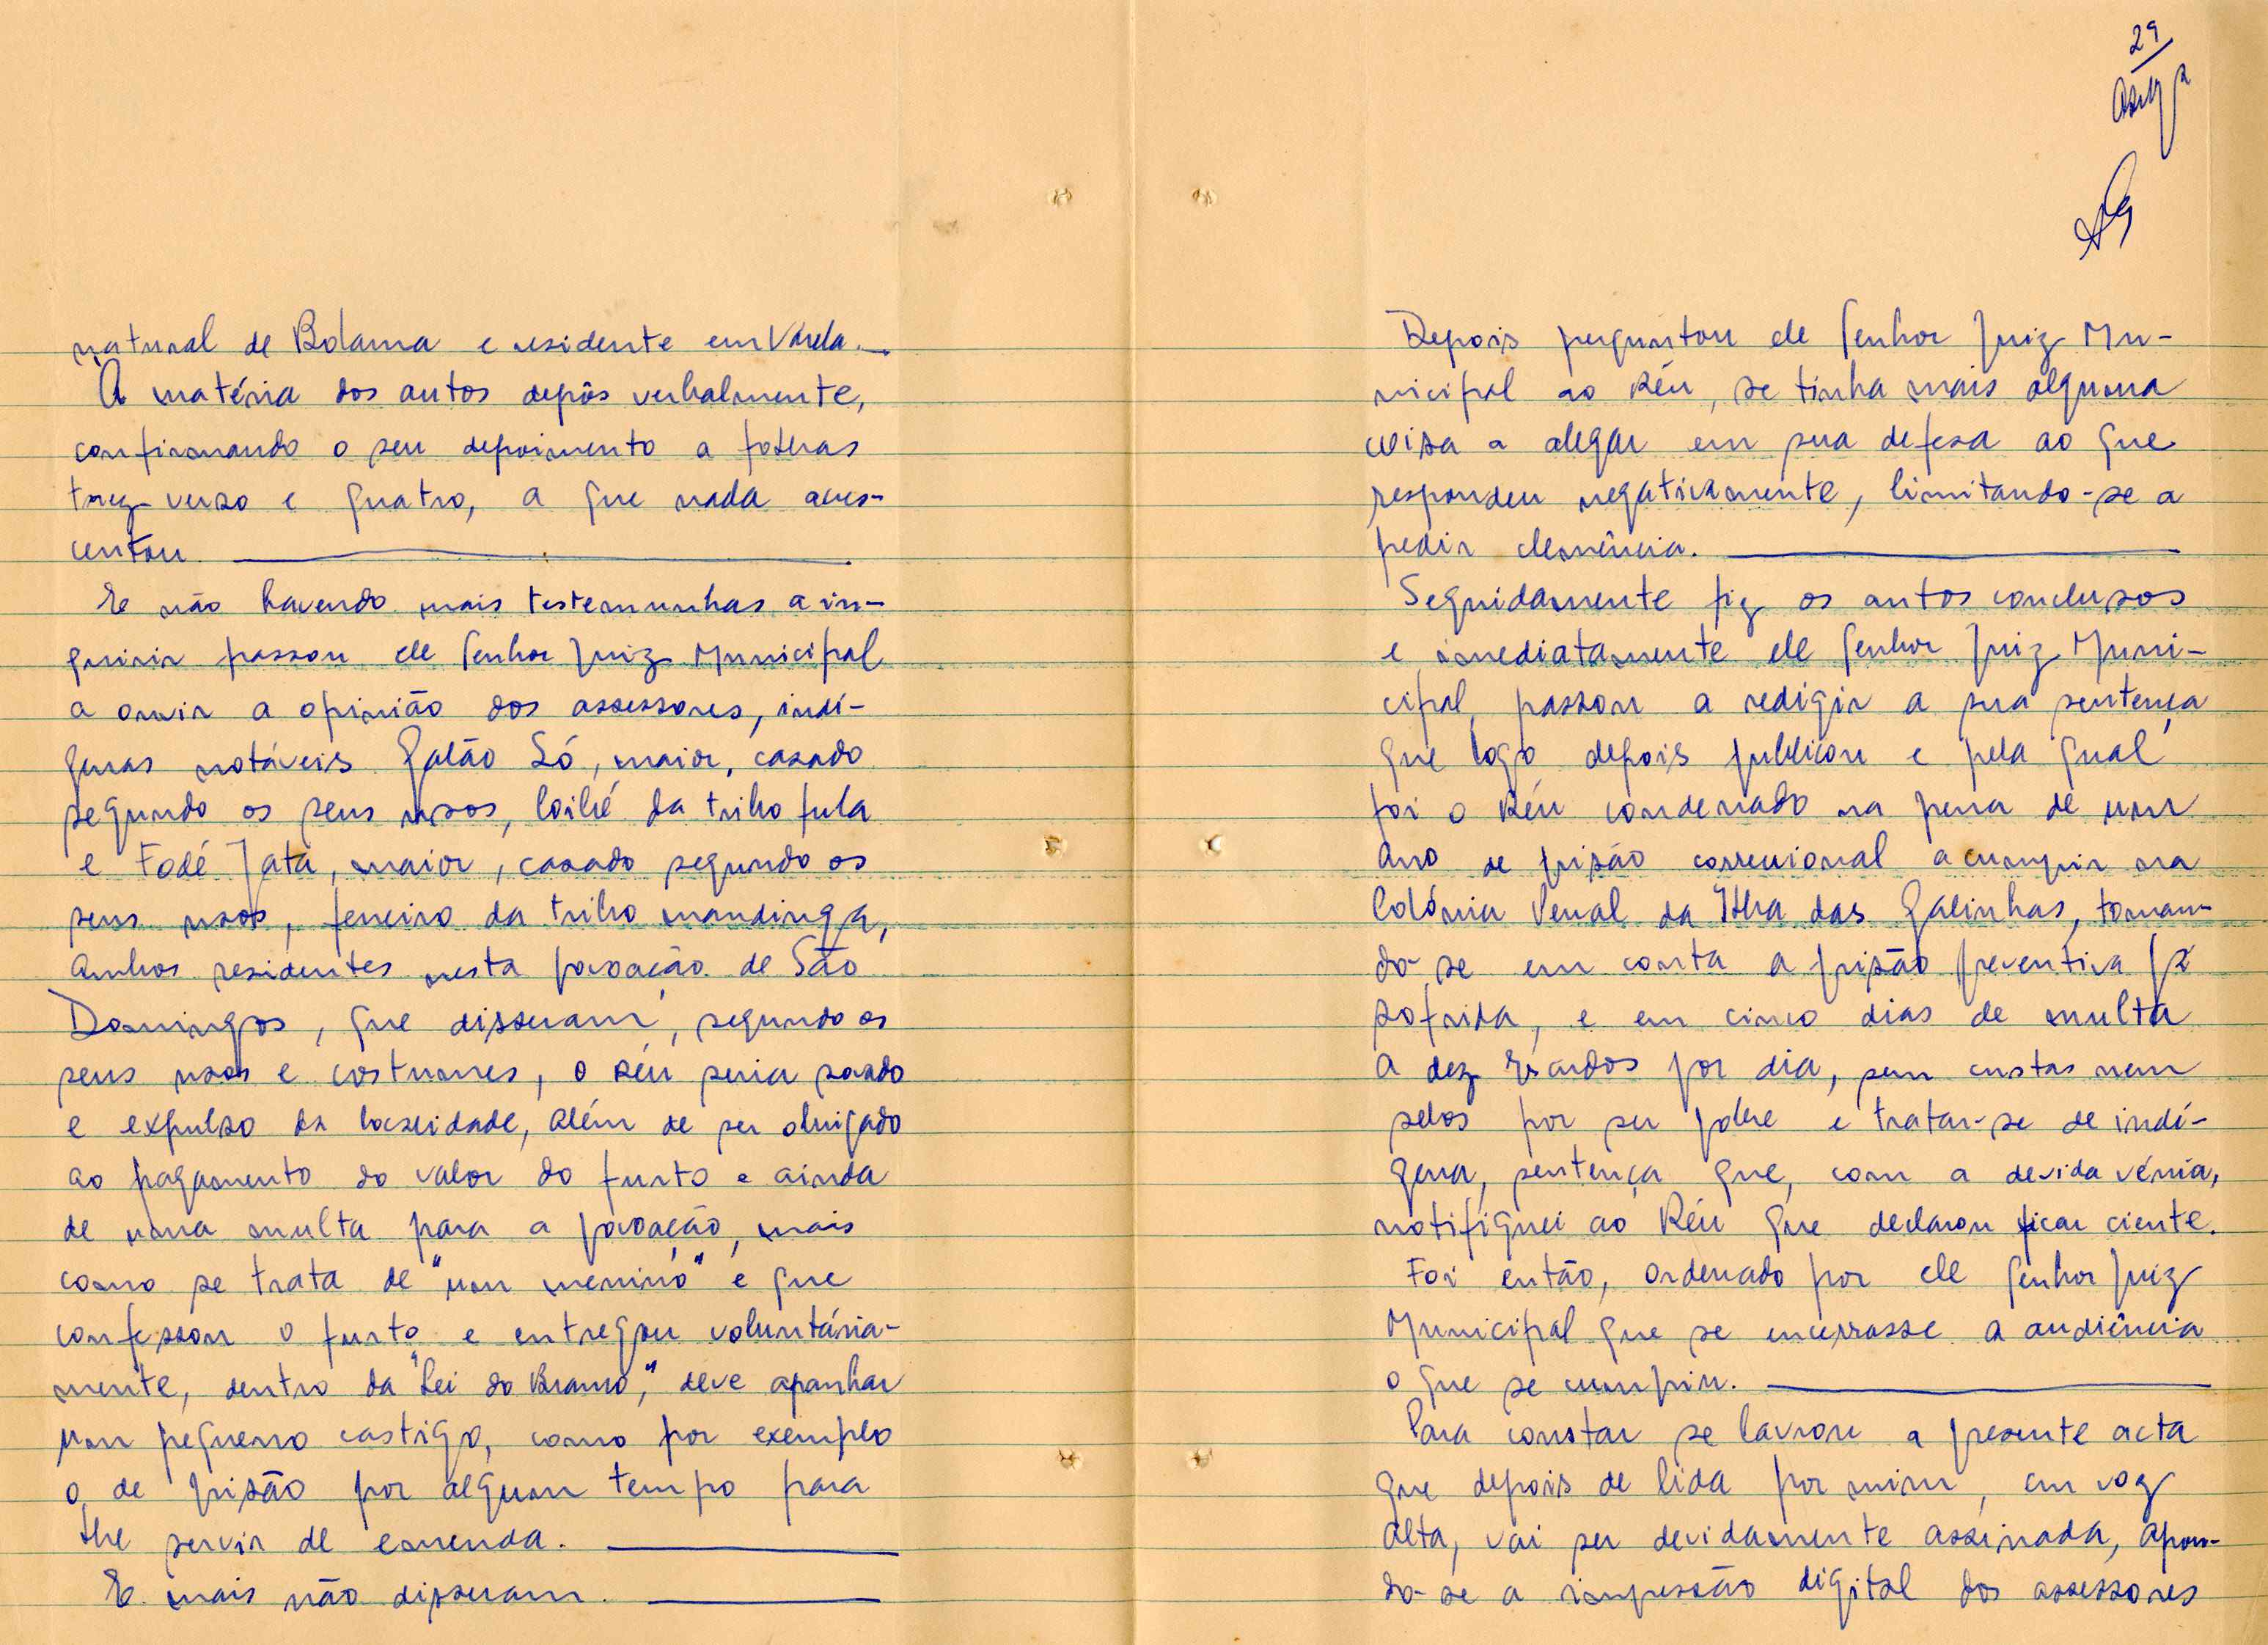 natural de Bolama e residente em Varela.
À matéria dos autos depôs verbalmente,
confirmando o seu depoimento a folhas
trez verso e quatro, a que nada acres-
centou
E não havendo mais testemunhas a in-
quirir passou ele Senhor Juiz Municipal
a ouvir a opinião dos assessores, indí-
genas notáveis Galão Só, maior, casado
segundo os seus usos, da tribo fula
e Fodé Jata, maior, casado segundo os
seus usos, ferreiro da tribo mandinga,
ambos residentes nesta povoação de São
Domingos, que disseram, segundo os
seus usos e costumes, o réu seria sovado
e expulso da localidade, além de ser obrigado
ao pagamento do valor do furto e ainda
de uma multa para a povoação, mais
como se trata de "um menino" e que
confessou o furto e entregou voluntária-
mente, dentro da "Lei do Branco," deve apanhar
um pequeno castigo, como por exemplo
o de prisão por algum tempo para
lhe servir de emenda.
E mais não disseram.
29
Depois perguntou ele Senhor Juiz Mu-
nicipal ao Réu, se tinha mais alguma
coisa a alegar em sua defesa ao que
respondeu negativamente, limitando-se a
pedir clemência.
Seguidamente fiz os autos conclusos
e imediatamente ele Senhor Juiz Muni-
cipal, passou a redigir a sua sentença
que logo depois publicou e pela qual
foi o Réu condenado na pena de um
ano de prisão correcional a cumprir na
Colónia Penal da Ilha das Galinhas, toman-
do-se em conta a prisão preventiva já
sofrida, e em cinco dias de multa
a dez Escudos por dia, sem custas nem
selos por ser pobre e tratar-se de indí-
gena, sentença que, com a devida vénia,
notifiquei ao Réu que declarou ficar ciente.
Foi então, ordenado por ele Senhor Juiz
Municipal que se encerrasse a audiência
o que se cumpriu.
Para constar se lavrou a presente acta
que depois de lida por mim, em voz
alta, vai ser devidamente assinada, apon-
do-se a impressão digital dos assessores